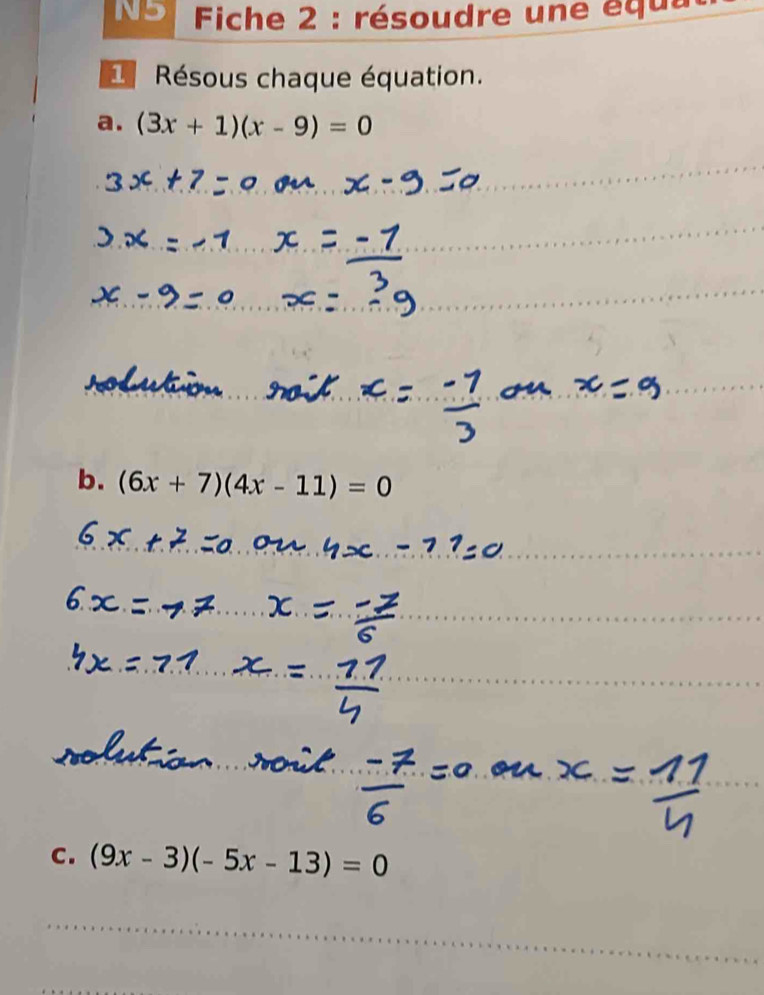 N5 Fiche 2 : résoudre une équat
1 Résous chaque équation.
a. (3x + 1)(x - 9) = 0
3x + 1 = 0 ou x - 9 = 0
3x = -1 x = -1/3
x - 9 = 0 x = -9
solution soit x = -1/3 ou x = 9
b. (6x + 7)(4x - 11) = 0
6x + 7 = 0 ou 4x - 11 = 0
6x = -7 x = -7/6
4x = 11 x = 11/4
solution soit -7/6 = 0 ou x = 11/4
c. (9x - 3)(- 5x - 13) = 0